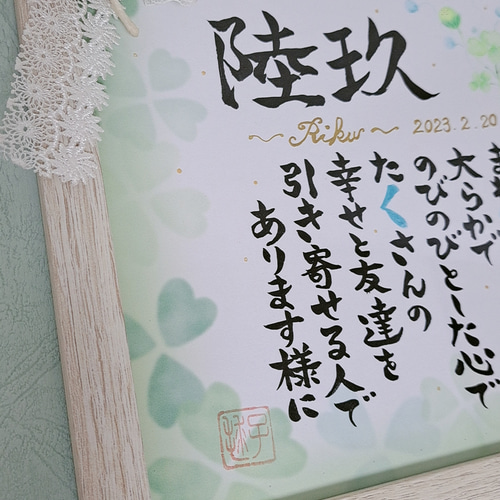 陸玖
~Riku~ 2023.2.20
大らかで
のびのびとした心で
たくさんの
幸せと友達を
引き寄せる人で
あります様に